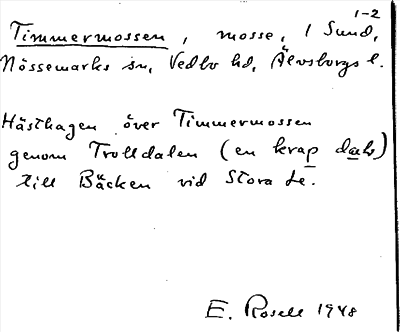 1-2
Timmermossen, mosse, 1 Sund,
Nössemarks sn, Vedbo hd, Älvsborgs l.
Hästhagen över Timmermossen
genom Trolldalen (en krap dæhr)
till Bäcken vid Stora Le.
E. Rosell 1948